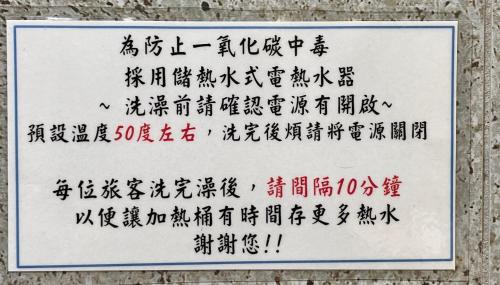 為防止一氧化碳中毒
採用儲熱水式電熱水器
~ 洗澡前請確認電源有開啟~
預設溫度50度左右，洗完後煩請將電源關閉
每位旅客洗完澡後，請間隔10分鐘
以便讓加熱桶有時間存更多熱水
謝謝您!!